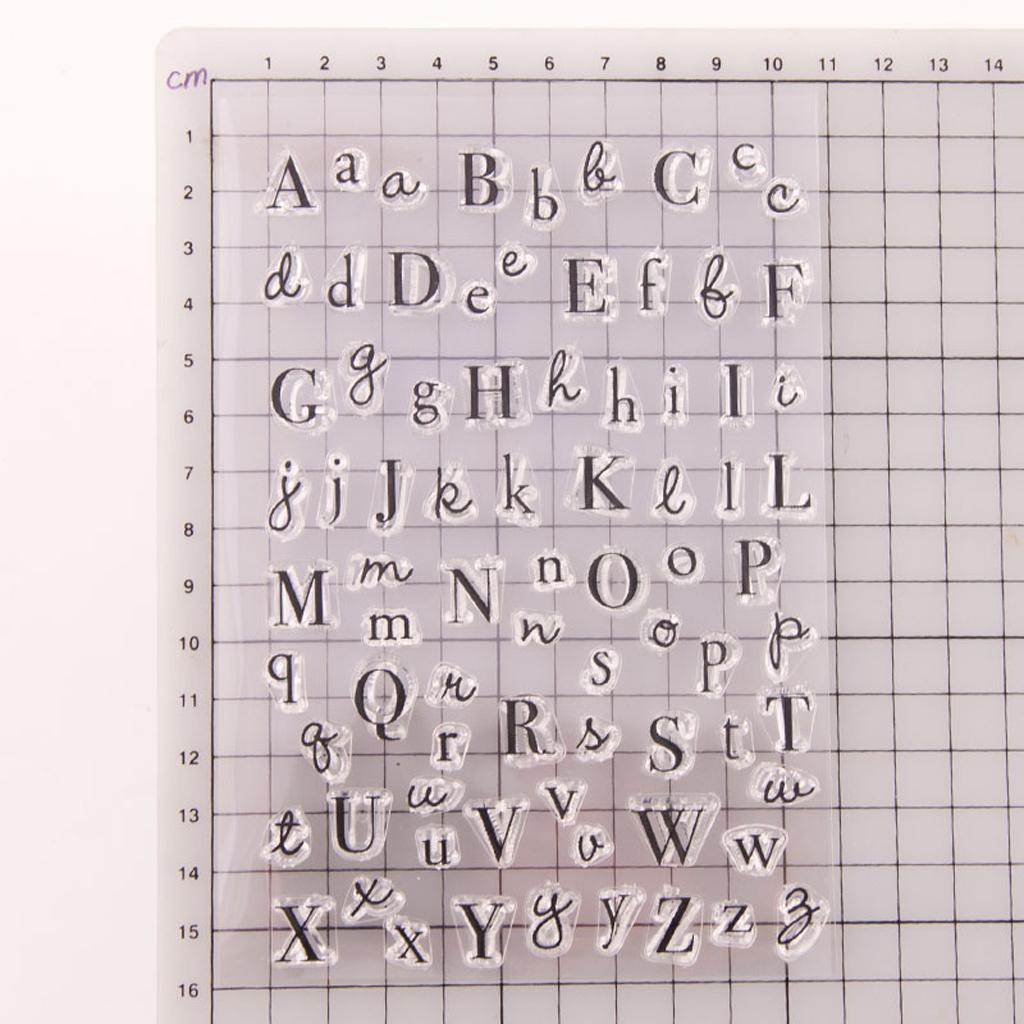 1 2 3 4 5 6 7 8 9 10 11 12 13 14
cm
1
A a a B b b C c c
2
3
d d D e e E f f F
4
5
G g g H h h i I i
6
7
j j J k k K l l L
8
M m N n O o P
9
m n o p p
10
q Q r s
11
q r R s S t T
12
u v w
13
t U u V v W w
14
X x x Y y y Z z z
15
16